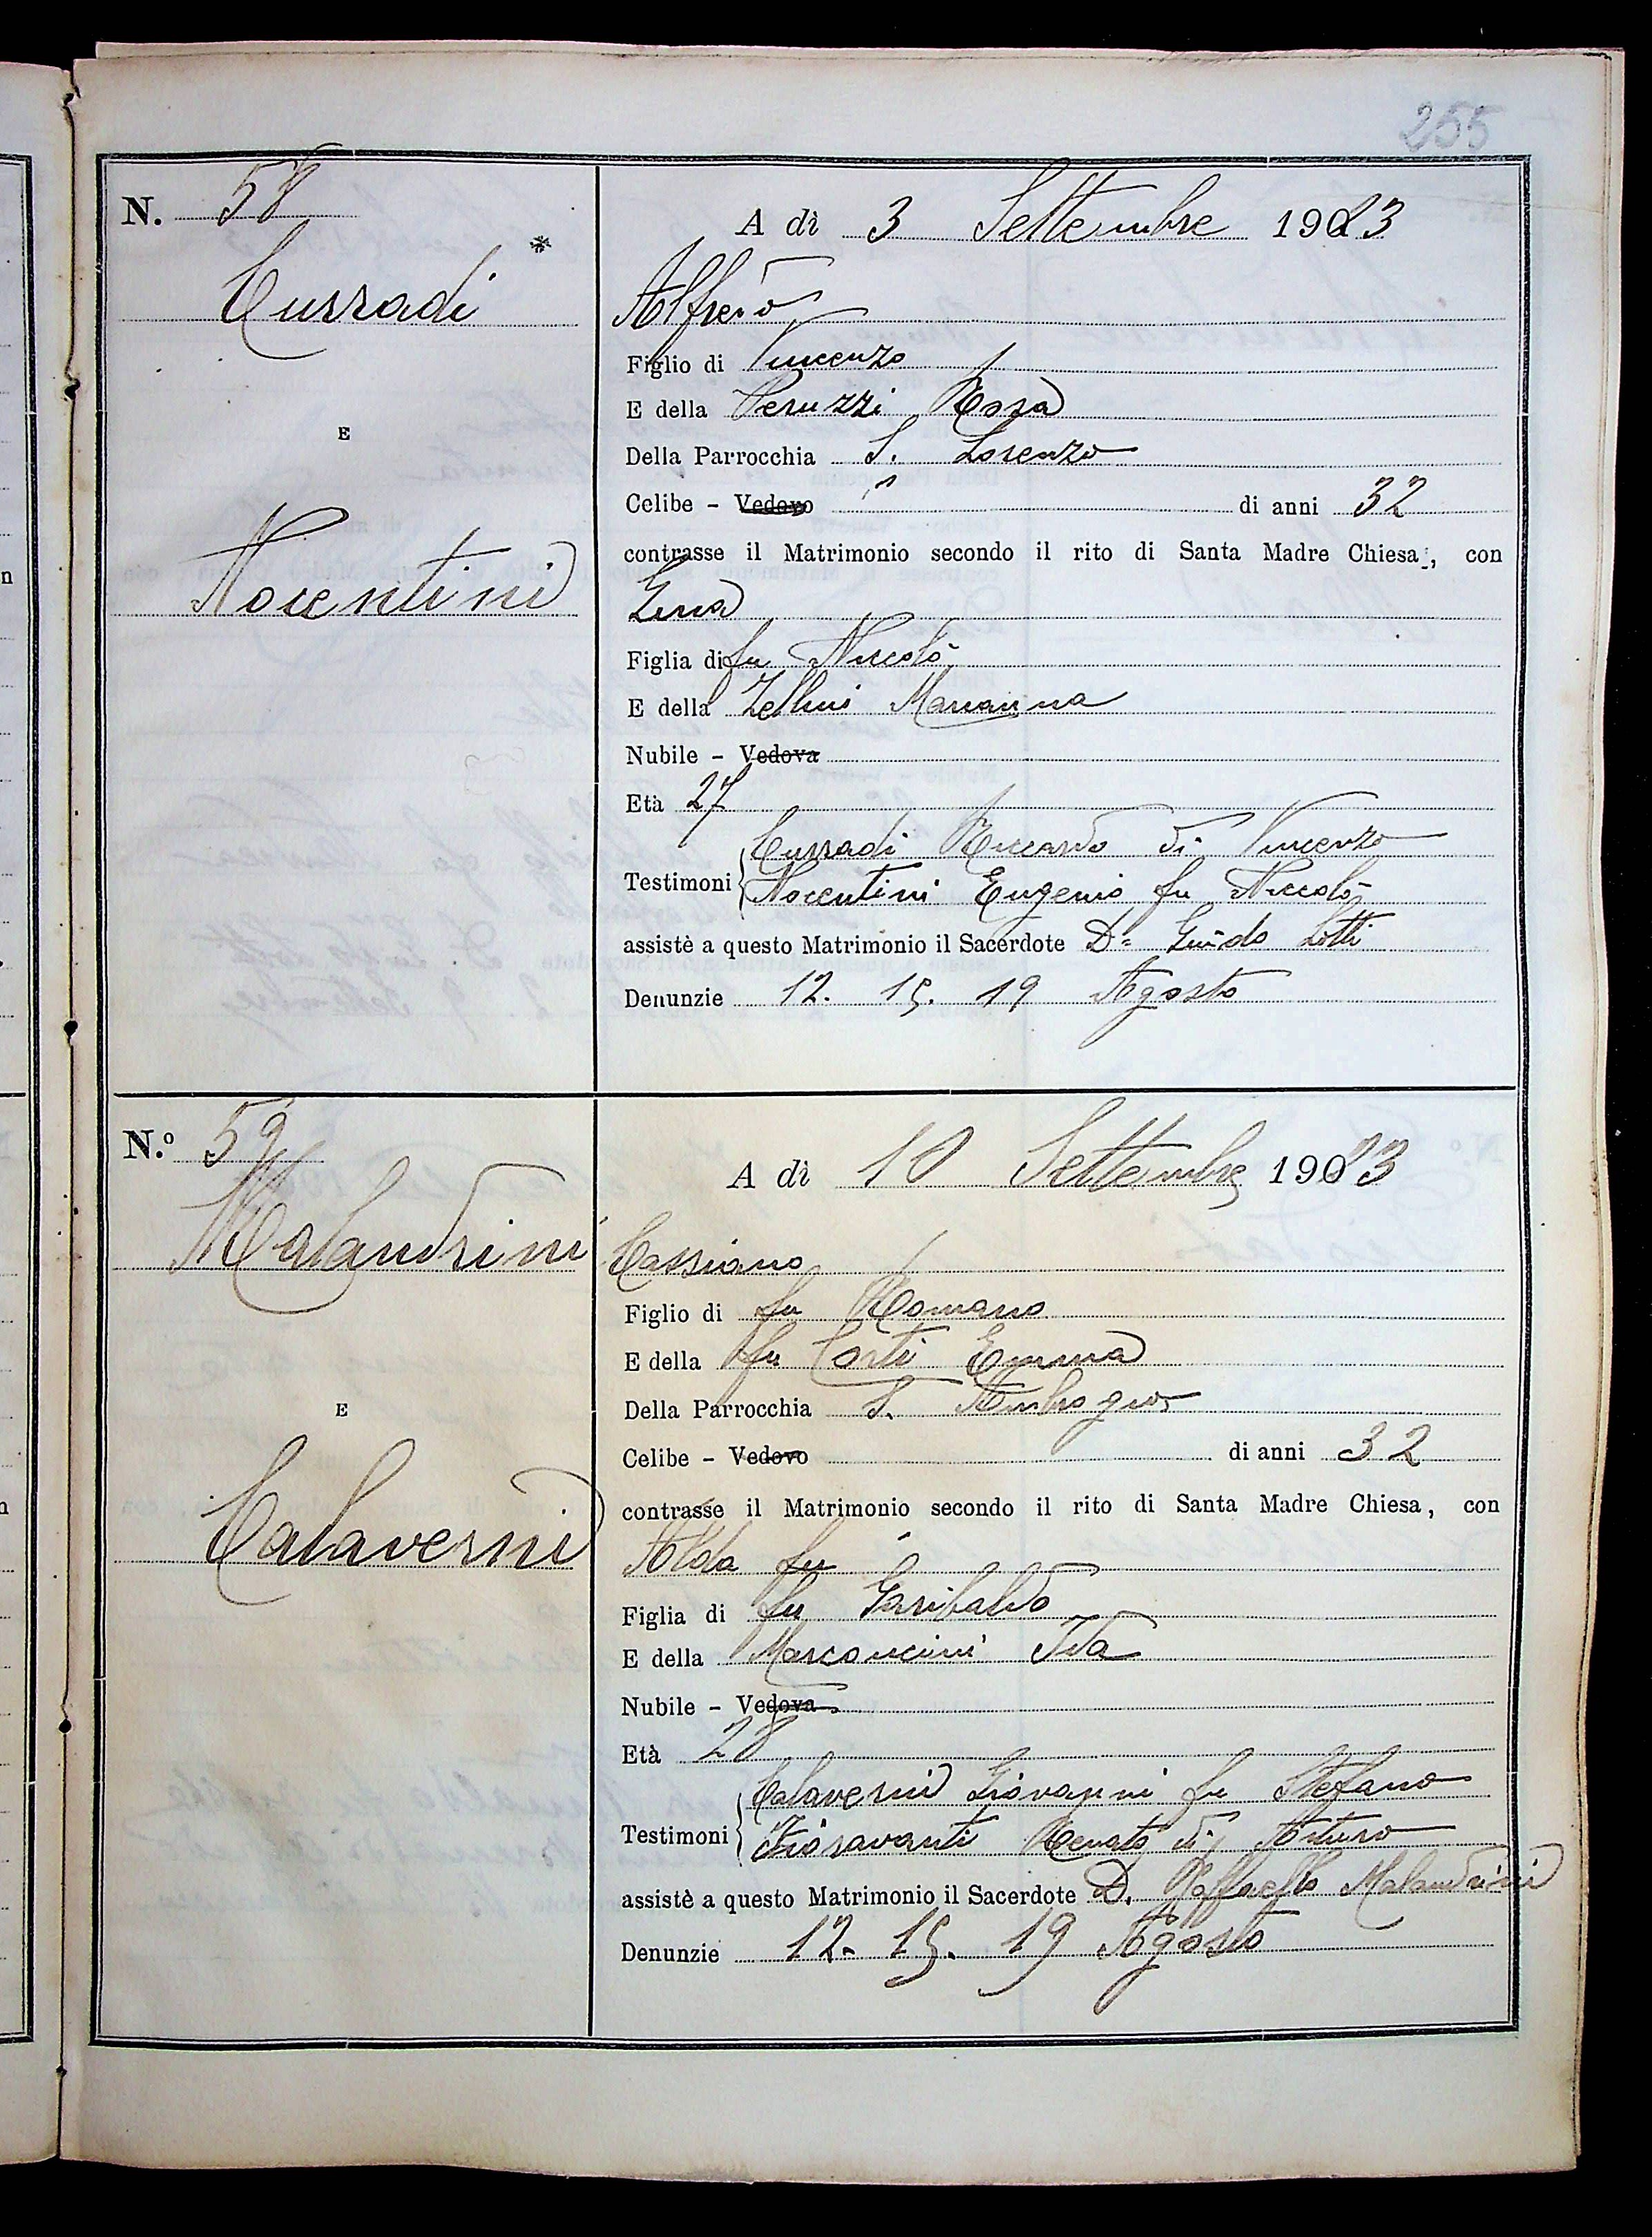 255
N. 58
A dì 3 Settembre 1923
Curradi
Alfredo
Figlio di Vincenzo
E della Peruzzi Rosa
E
Della Parrocchia S. Lorenzo
Celibe - Vedovo di anni 32
contrasse il Matrimonio secondo il rito di Santa Madre Chiesa, con
Nocentini
Gina
Figlia di fu Niccolò
E della Zellini Marianna
Nubile - Vedova
Età 27
Curradi Riccardo di Vincenzo
Testimoni Nocentini Eugenio fu Niccolò
assistè a questo Matrimonio il Sacerdote Dn Guido Lotti
Denunzie 12. 15. 19 Agosto
N.º 59
A dì 10 Settembre 1923
Malandrini
Cassiano
Figlio di fu Romano
E della fu Corti Emma
E
Della Parrocchia S. Ambrogio
Celibe - Vedovo di anni 32
contrasse il Matrimonio secondo il rito di Santa Madre Chiesa, con
Calaverni
Alda fu
Figlia di fu Garibaldo
E della Marconcini Ida
Nubile - Vedova
Età 28
Calaverni Giovanni fu Stefano
Testimoni Fioravanti Renato di Arturo
assistè a questo Matrimonio il Sacerdote D. Raffaello Malandrini
Denunzie 12. 15. 19 Agosto